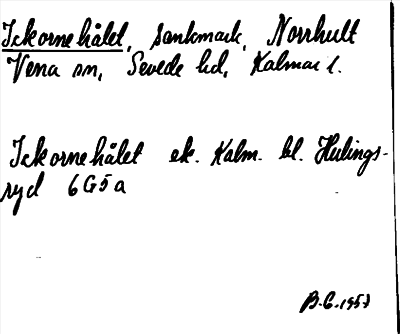 Ickornehålet, sankmark, Norrhult
Vena sn, Sevede hd, Kalmar l.
Ickornehålet ek. Kalm. bl. Hulings-
ryd 6G5a
B.G. 1957